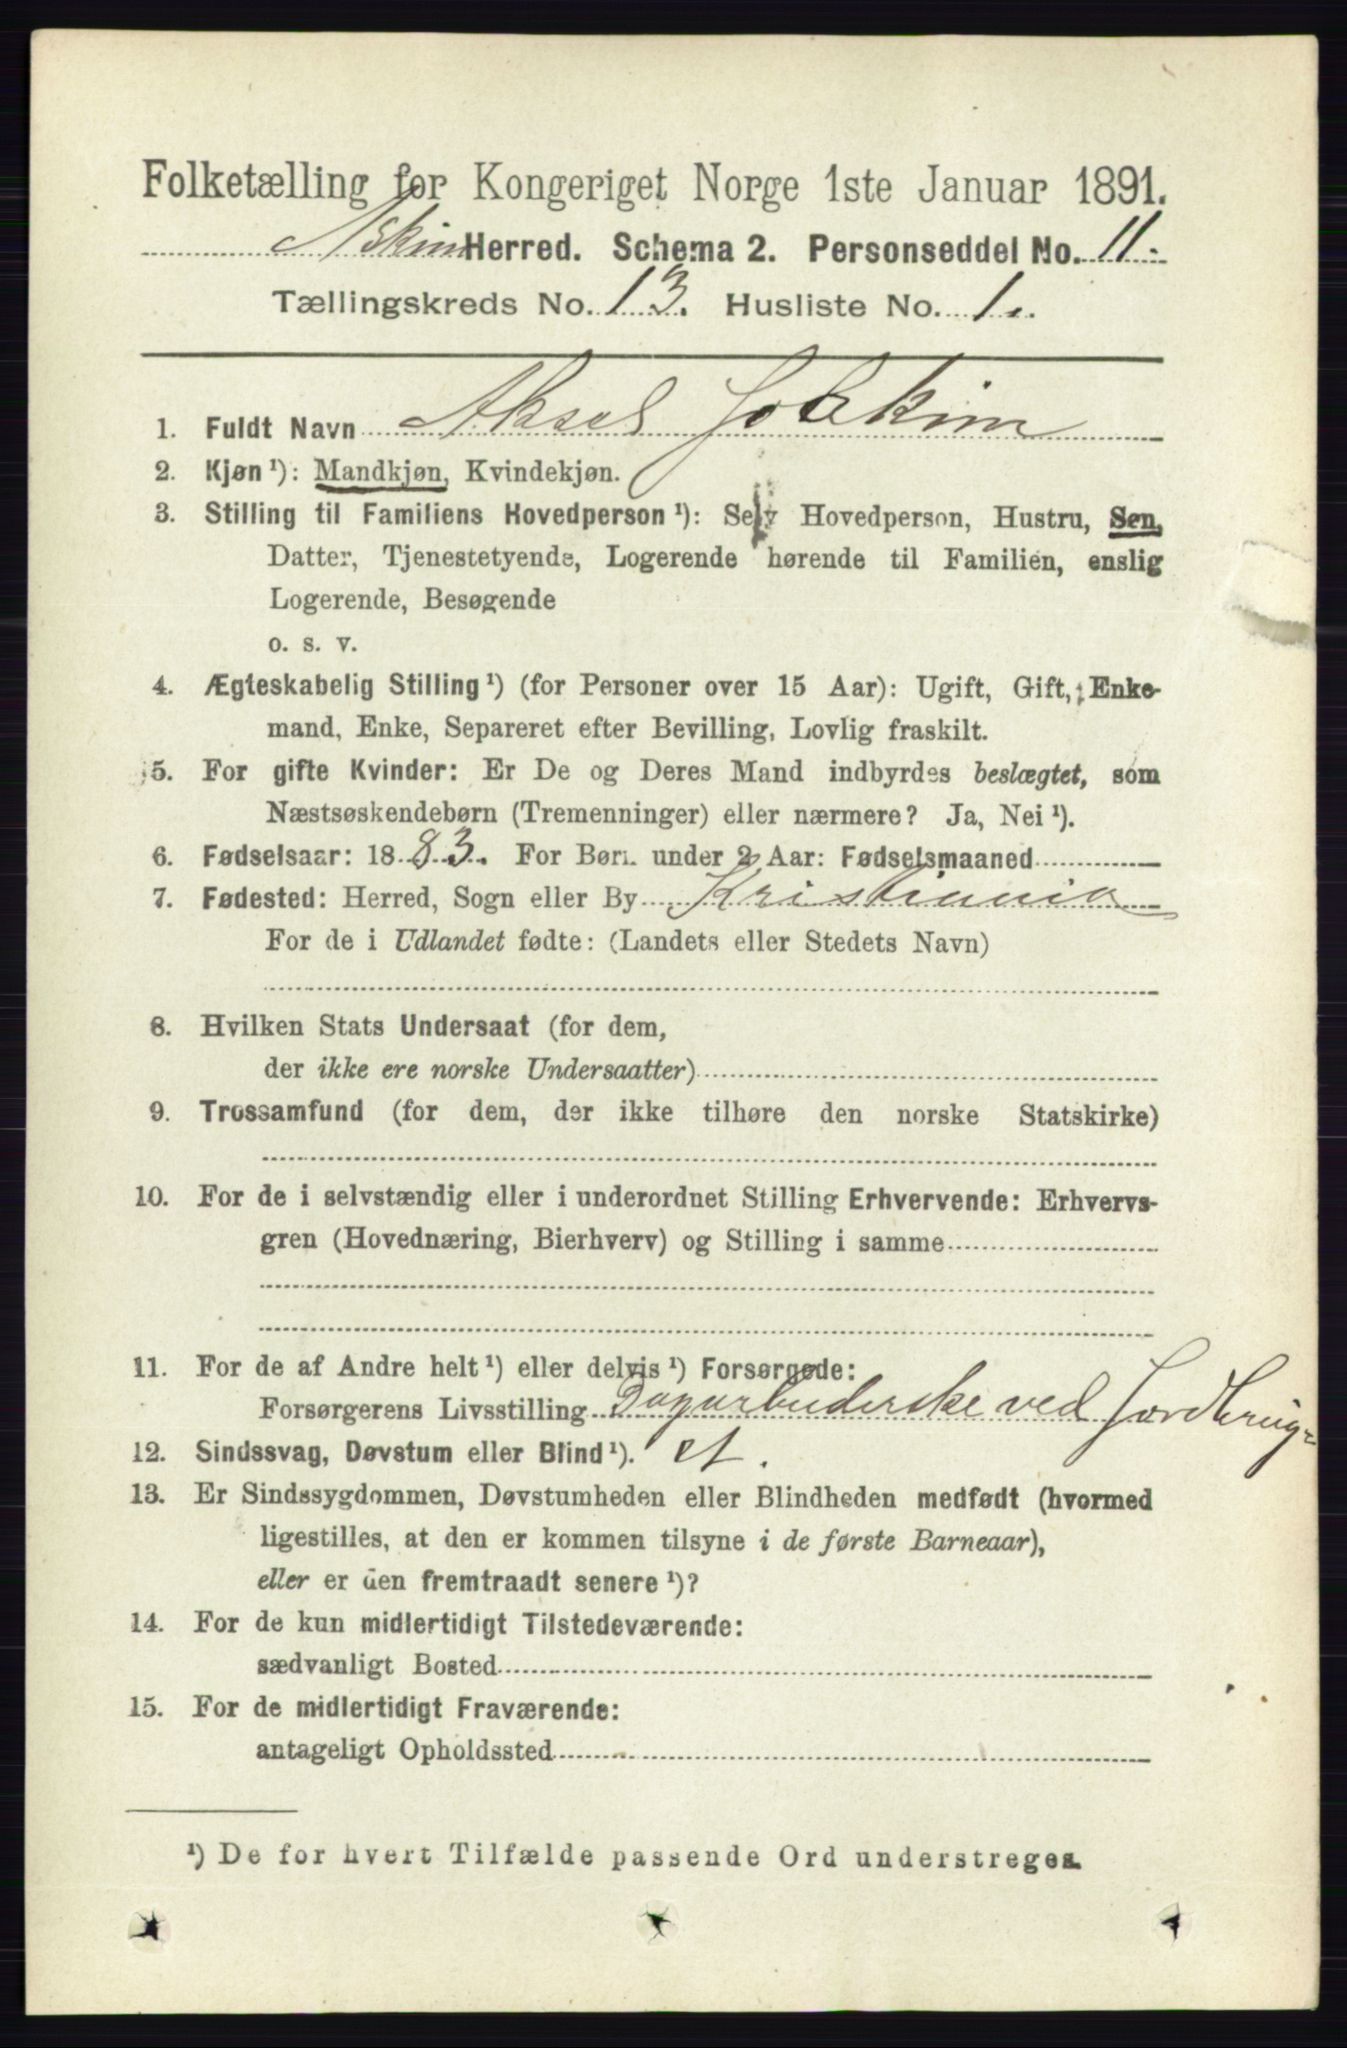 Folketælling for Kongeriget Norge 1ste Januar 1891.
Askim Herred. Schema 2. Personseddel No. 11.
Tællingskreds No. 13. Husliste No. 1.
1. Fuldt Navn Aksel Joakim
2. Kjøn ¹): Mandkjøn, Kvindekjøn.
3. Stilling til Familiens Hovedperson ¹): Selv Hovedperson, Hustru, Søn,
Datter, Tjenestetyende, Logerende hørende til Familien, enslig
Logerende, Besøgende
o. s. v.
4. Ægteskabelig Stilling ¹) (for Personer over 15 Aar): Ugift, Gift, Enke-
mand, Enke, Separeret efter Bevilling, Lovlig fraskilt.
5. For gifte Kvinder: Er De og Deres Mand indbyrdes beslægtet, som
Næstsøskendebørn (Tremenninger) eller nærmere? Ja, Nei ¹).
6. Fødselsaar: 1883. For Børn under 2 Aar: Fødselsmaaned
7. Fødested: Herred, Sogn eller By Kristiania
For de i Udlandet fødte: (Landets eller Stedets Navn)
8. Hvilken Stats Undersaat (for dem,
der ikke ere norske Undersaatter)
9. Trossamfund (for dem, der ikke tilhøre den norske Statskirke)
10. For de i selvstændig eller i underordnet Stilling Erhvervende: Erhvervs-
gren (Hovednæring, Bierhverv) og Stilling i samme
11. For de af Andre helt ¹) eller delvis ¹) Forsørgede:
Forsørgerens Livsstilling Dagarbeiderske ved Jordbrug-
12. Sindssvag, Døvstum eller Blind ¹). et.
13. Er Sindssygdommen, Døvstumheden eller Blindheden medfødt (hvormed
ligestilles, at den er kommen tilsyne i de første Barneaar),
eller er den fremtraadt senere ¹)?
14. For de kun midlertidigt Tilstedeværende:
sædvanligt Bosted
15. For de midlertidigt Fraværende:
antageligt Opholdssted
¹) De for hvert Tilfælde passende Ord understreges.